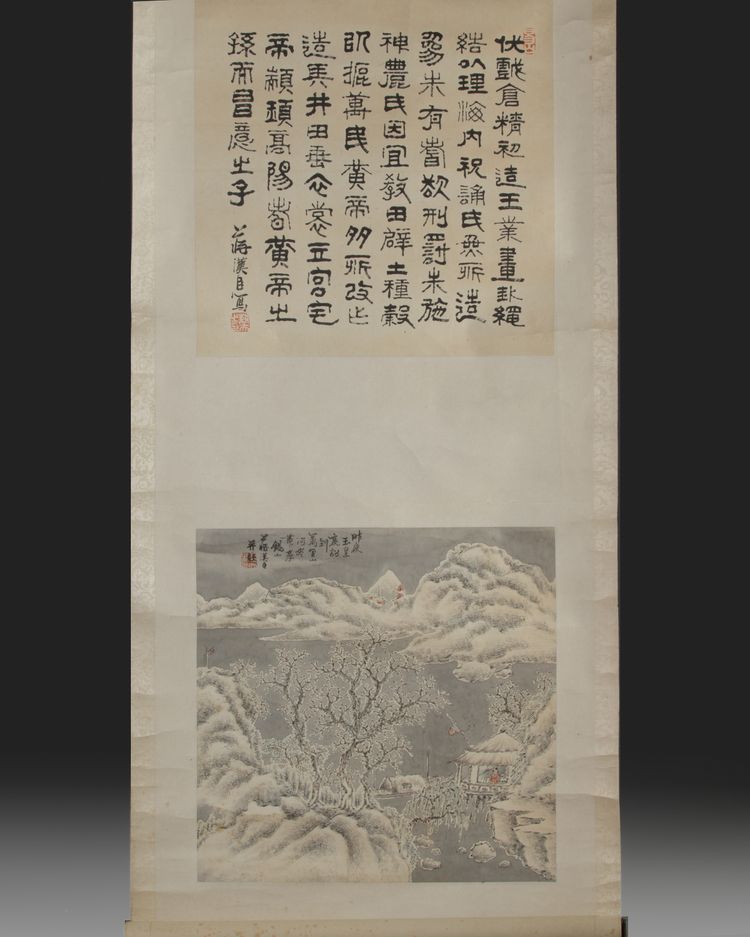 伏戲倉精初造王業畫卦繩
結以理海内祝誦氏無所造
為未有耆欲刑罰未施
神農氏因宜教田辟土種穀
以振萬民黃帝多所改作
造兵井田垂衣裳立宮宅
帝顓頊高陽者黃帝之
孫而昌意之子
蔣漢
昨夜
玉皇
哀詔
到
萬里山